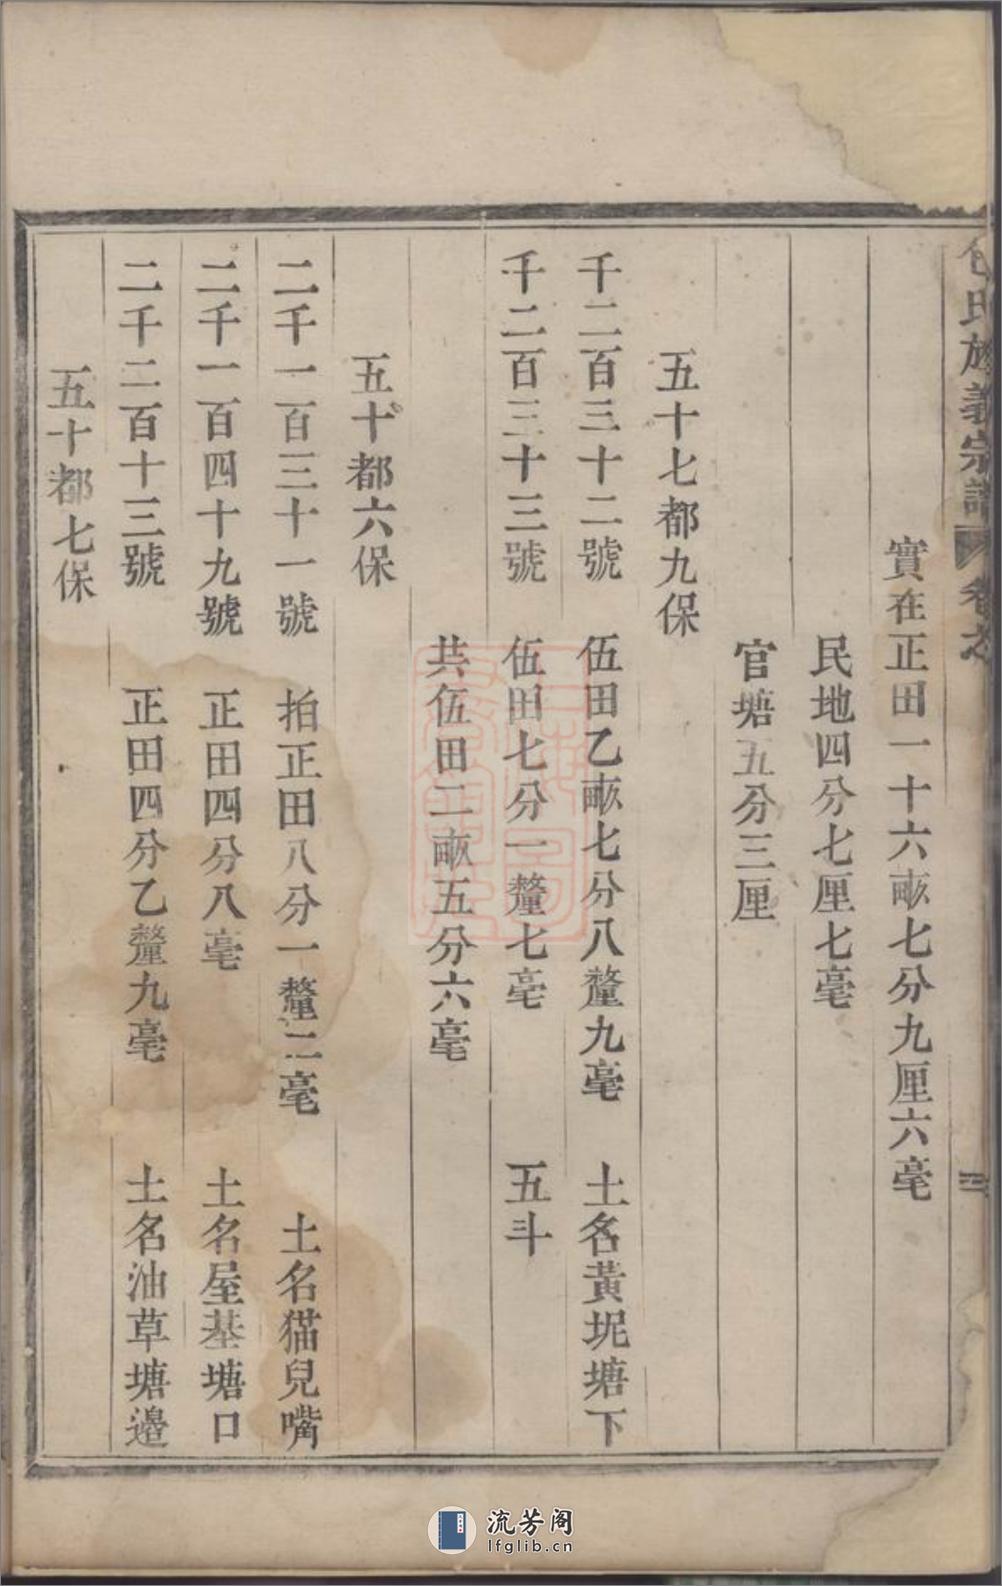 氏族義宗譜 卷之
實在正田一十六畝七分九厘六毫
民地四分七厘七毫
官塘五分三厘
五十七都九保
千二百三十二號 伍田乙畝七分八釐九毫 土名黃坭塘下
千二百三十三號 伍田七分一釐七毫 五斗
共伍田二畝五分六毫
五十都六保
二千一百三十一號 拍正田八分一釐二毫 土名猫兒嘴
二千一百四十九號 正田四分八毫 土名屋基塘口
二千二百十三號 正田四分乙釐九毫 土名油草塘邉
五十都七保
流芳阁
lfglib.cn